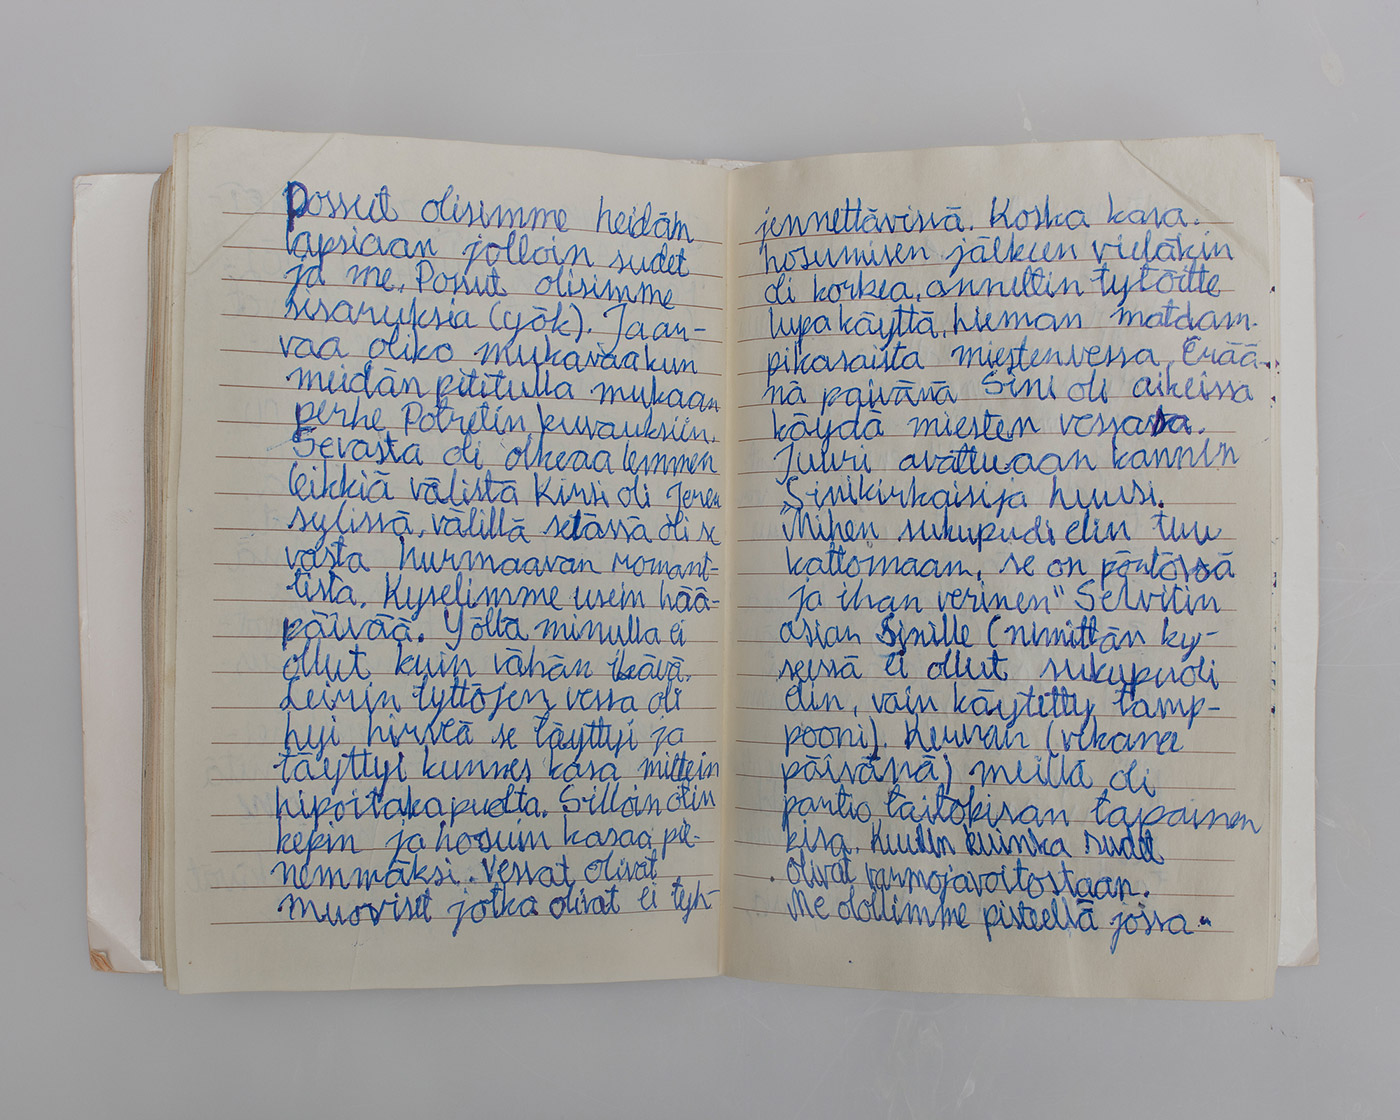 Possut olisimme heidän
lapsiaan jolloin sudet
ja me, Possut olisimme
sisaruksia (yök). Ja ar-
vaa oliko mukavaa kun
meidän pititulla mukaan
perhe Potretin kuvauksiin.
Sevasta oli oikeaa lemmen
leikkiä välistä Kirsi oli Jeren
sylissä, välillä setässä oli se
vasta hurmaavan romant-
tista. Kyselimme usein hää-
päivää. Yöltä minulla ei
ollut kuin vähän ikävä.
Leirin tyttöjen vessa oli
hyi hirveä se täyttyi ja
täyttyi kunnes kasa miltein
hipoitakapuolta. Silloin otin
kepin ja hosuin kasaa pie-
nemmäksi. Vessat olivat
muoviset jotka olivat ei tyh-
jennettävissä. Koska kasa.
hosumisen jälkeen vieläkin
oli korkea, annettin tytöitte
lupa käyttä, hieman matdam-
pikasaista miestenvessa. Erää-
nä päivänä Sini oli aikeissa
käydä miesten vessassa.
Juuri avattuaan kannen
Sinikirkaisija huusi.
"Mihen sukupudi elin tuu
kattomaan, se on pöntössä
ja ihan verinen" Selvitin
asian Sinille (nimittän ky-
seissä ei ollut sukupudi
elin, vain käytetty tamp-
pooni). Kerran (vikana
päivänä) meillä oli
partio taitokisan tapainen
kisa. Kuulin kuinka sudet
olivat varmojavoitostaan.
Me olollimme pisteellä jossa